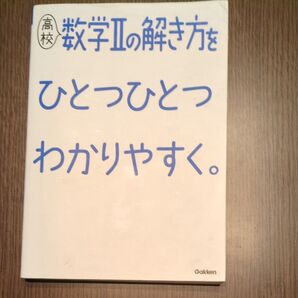 高校
数学Ⅱの解き方を
ひとつひとつ
わかりやすく。
Gakken